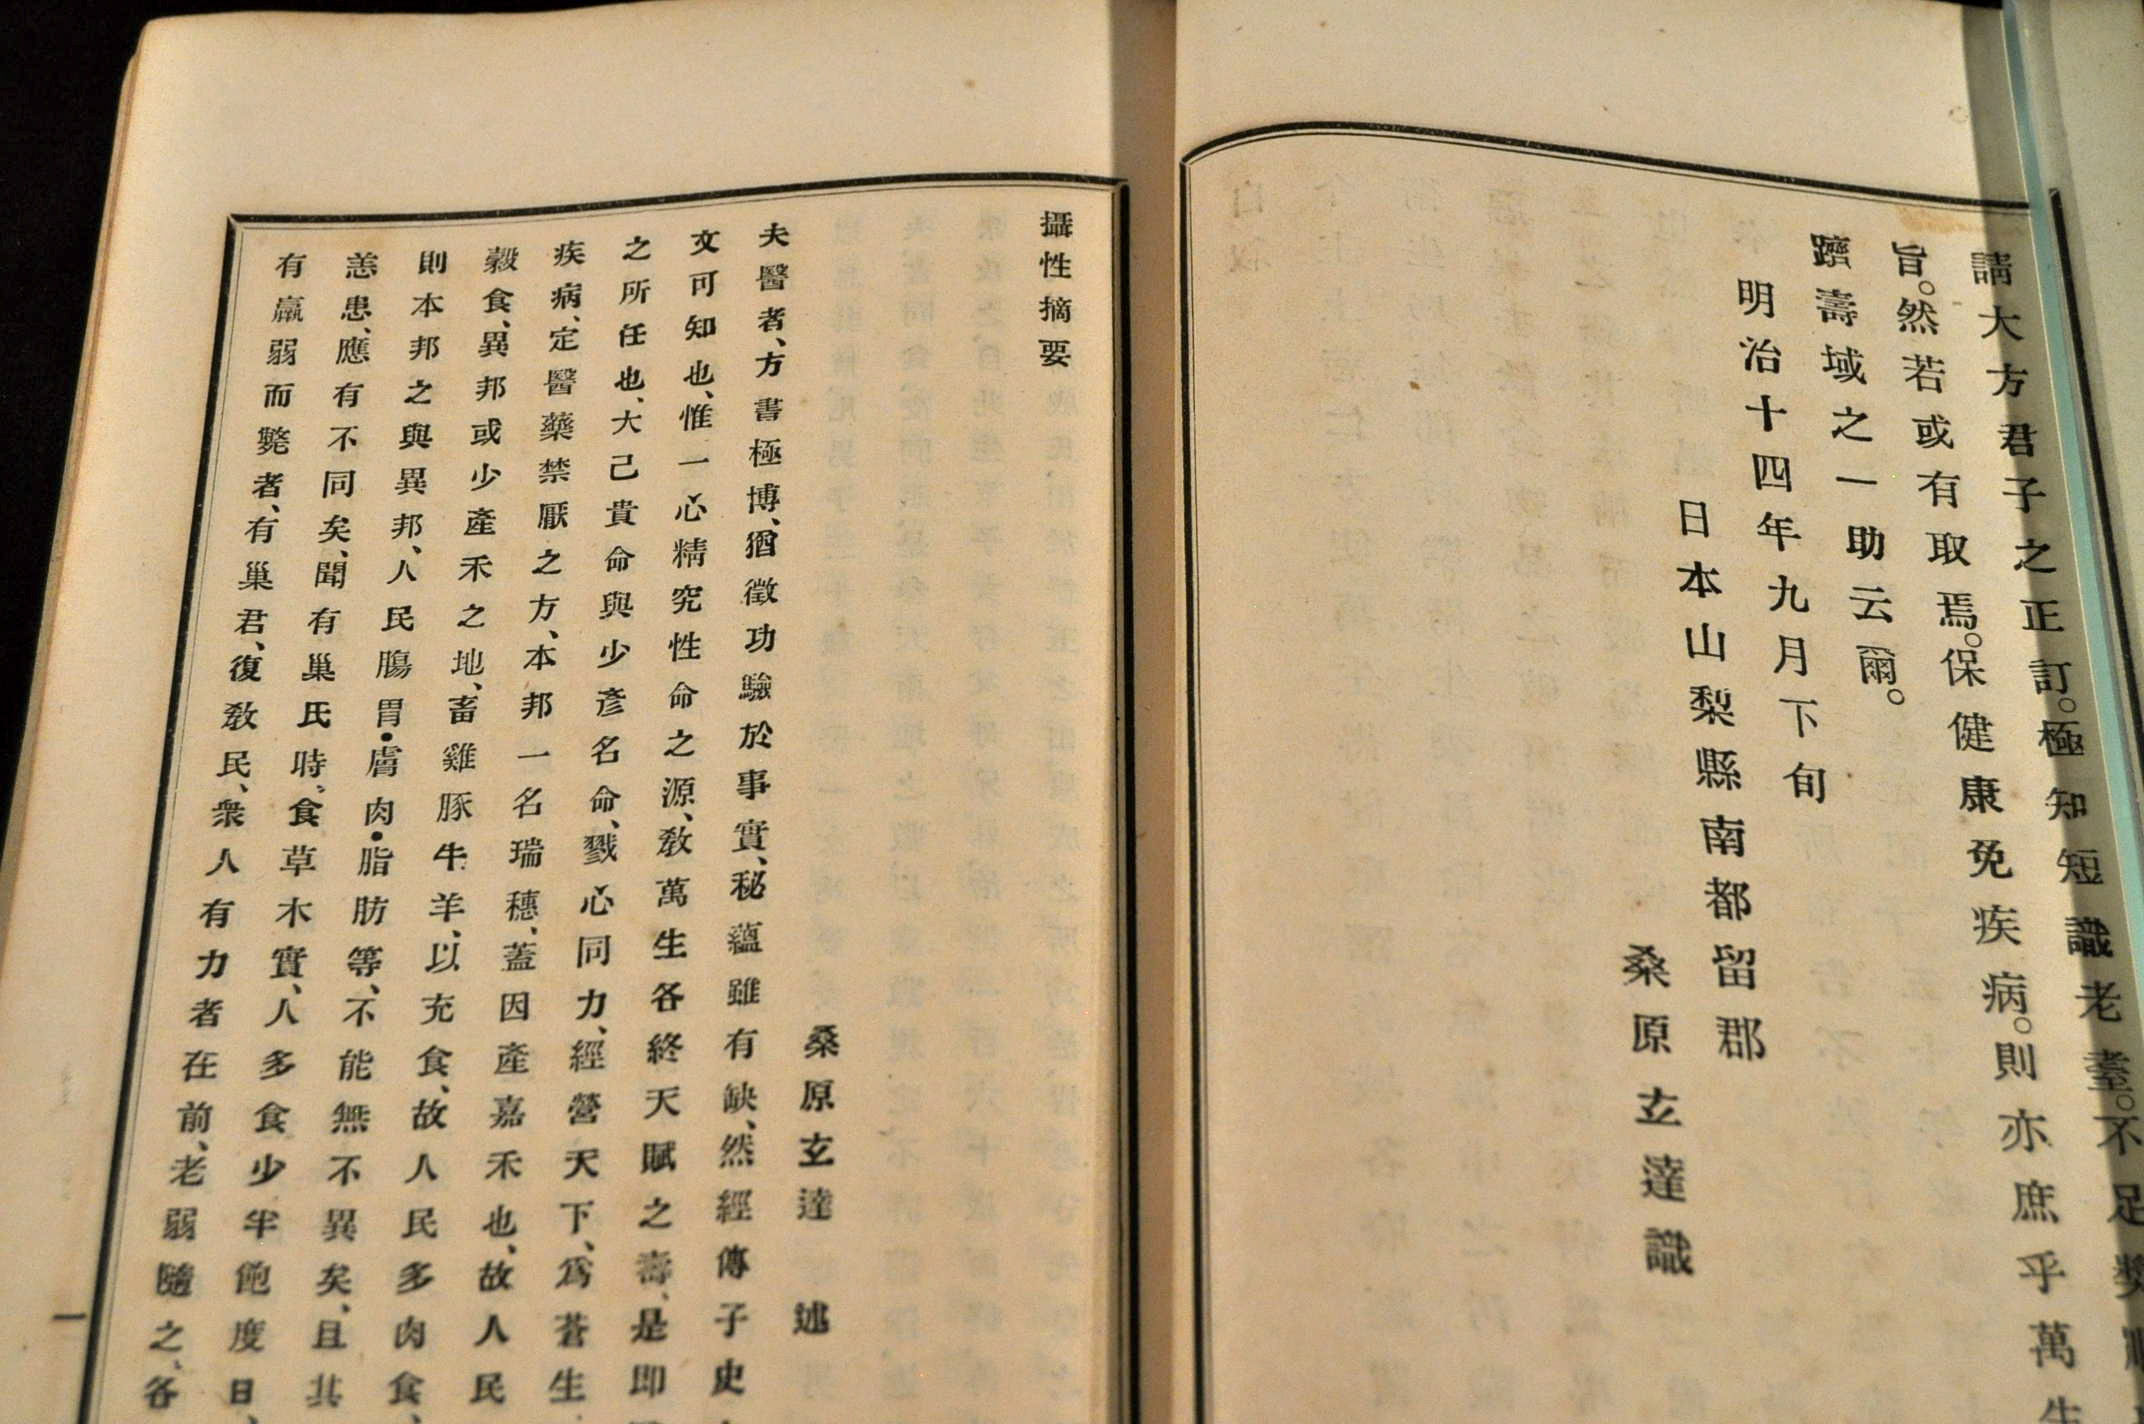 請大方君子之正訂。極知短識老耋。不足
旨。然若或有取焉。保健康免疾病。則亦庶乎萬生
躋壽域之一助云爾。
明治十四年九月下旬
日本山梨縣南都留郡
桑原玄達識
攝性摘要
桑原玄達 述
夫醫者、方書極博、猶徵功驗於事實、秘蘊雖有缺、然經傳子史
文可知也、惟一心精究性命之源、敎萬生各終天賦之壽、是即
之所任也、大己貴命與少彥名命、戮心同力、經營天下、爲蒼生
疾病、定醫藥禁厭之方、本邦一名瑞穗、蓋因產嘉禾也、故人民
穀食、異邦或少產禾之地、畜雞豚牛羊、以充食、故人民多肉食、
則本邦之與異邦、人民膓胃・膚肉・脂肪等、不能無不異矣、且其
恙患、應有不同矣、聞有巢氏時、食草木實、人多食少半飽度日、
有羸弱而斃者、有巢君、復敎民、衆人有力者在前、老弱隨之、各
一